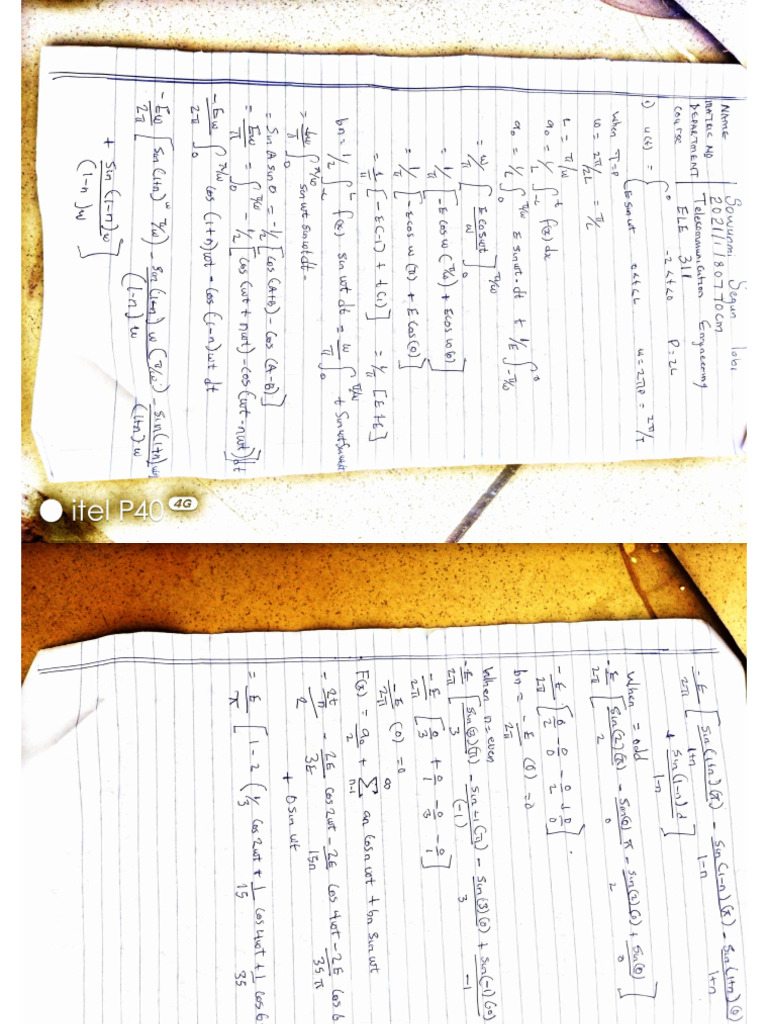 NAME Sowunmi Segun Tobi
MATRIC NO 2021/1/80770cm
DEPARTMENT Telecommunication Engineering
COURSE ELE 311
1) u(t) = { 0 -2<t<0 P=2L
{ E sin wt 0<t<L
When T=P
w = 2π/2L = π/L
L = π/w
a0 = 1/L ∫ f(x) dx
a0 = 1/L ∫0 π/w E sin wt·dt + 1/L ∫-π/w 0
= w/π [ -E cos wt / w ]0 π/w
= 1/π [ -E cos w (π/w) + E cos w 0 ]
= 1/π [ -E cos w (π) + E cos(0) ]
= 1/π [ -E(-1) + E(1) ] = 1/π [E+E]
bn = 1/L ∫-L L f(x) sin wt dt = w/π ∫0 π/w
= Ew/π ∫0 π/w sin wt sin wt dt -
= Sin A sin = -1/2 [cos(A+B) - cos(A-B)]
= Ew/π = ∫0 π/w -1/2 [cos(wt + nwt) - cos(wt - nwt)] dt
-Ew/2π ∫0 π/w cos(1+n)wt - cos(1-n)wt dt
-Ew/2π [ sin(1+n)w π/w) - sin(1-n)w (π/w) - sin(1+n)
(1-n)w (1+n)w
+ sin(1-n)w
(1-n)w ]
itel P40 4G
-E/2π [ Sin(1+n)(π)/1+n - Sin(1-n)(π)/1-n - Sin(1+n)(0)/1+n
+ Sin(1-n)/1-n ]
When = odd
-E/2π [ Sin(2)(π)/2 - Sin(0)π/0 - Sin(2)(0)/2 + Sin(0)/0 ]
-E/2π [ 0/2 - 0/0 - 0/2 + 0/0 ].
bn = -E/2π (0) = 0
When n = even
-E/2π [ Sin(3)(π)/3 - Sin-1(π)/(-1) - Sin(3)(0)/3 + Sin(-1)(0)/-1
-E/2π [ 0/3 + 0/1 - 0/3 - 0/1 ]
-E/2π (0) = 0
F(x) = a0/2 + ∑ n=1 ∞ an cos n wt + bn Sin wt
- 2E/3π cos 2wt - 2E/15π cos 4wt - 2E/35π cos 6
+ 0 sin wt
= E/π [ 1 - 2 ( 1/3 cos 2wt + 1/15 cos 4wt + 1/35 cos 6